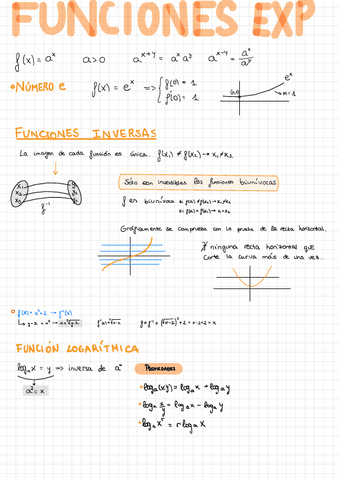 FUNCIONES EXP
f(x) = aˣ a>0 aˣ⁺ʸ = aˣ aʸ aˣ⁻ʸ = aˣ/aʸ
NÚMERO e f(x) = eˣ => { f(0) = 1
f'(0) = 1
eˣ
m = 1
FUNCIONES INVERSAS
La imagen de cada función es única. f(x₁) ≠ f(x₂) → x₁ ≠ x₂
Sólo son invertibles las funciones biunívocas
x₁
x₂
x₃
f⁻¹
f es biunívoca si
Gráficamente se comprueba con la prueba de la recta horizontal.
∄ ninguna recta horizontal que
corte la curva más de una vez.
→ f⁻¹(x)
FUNCIÓN LOGARÍTMICA
logₐ x = y => inversa de aˣ
aʸ = x
PROPIEDADES
logₐ(xy) = logₐ x + logₐ y
logₐ x/y = logₐ x - logₐ y
logₐ xʳ = r logₐ x